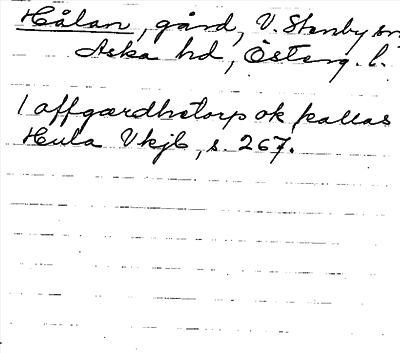 Hålan, gård, V. Stenby sn
Aska hd, Österg. l.
1 affgærdhetorp ok kallas
Hula Vkjb, s. 267.